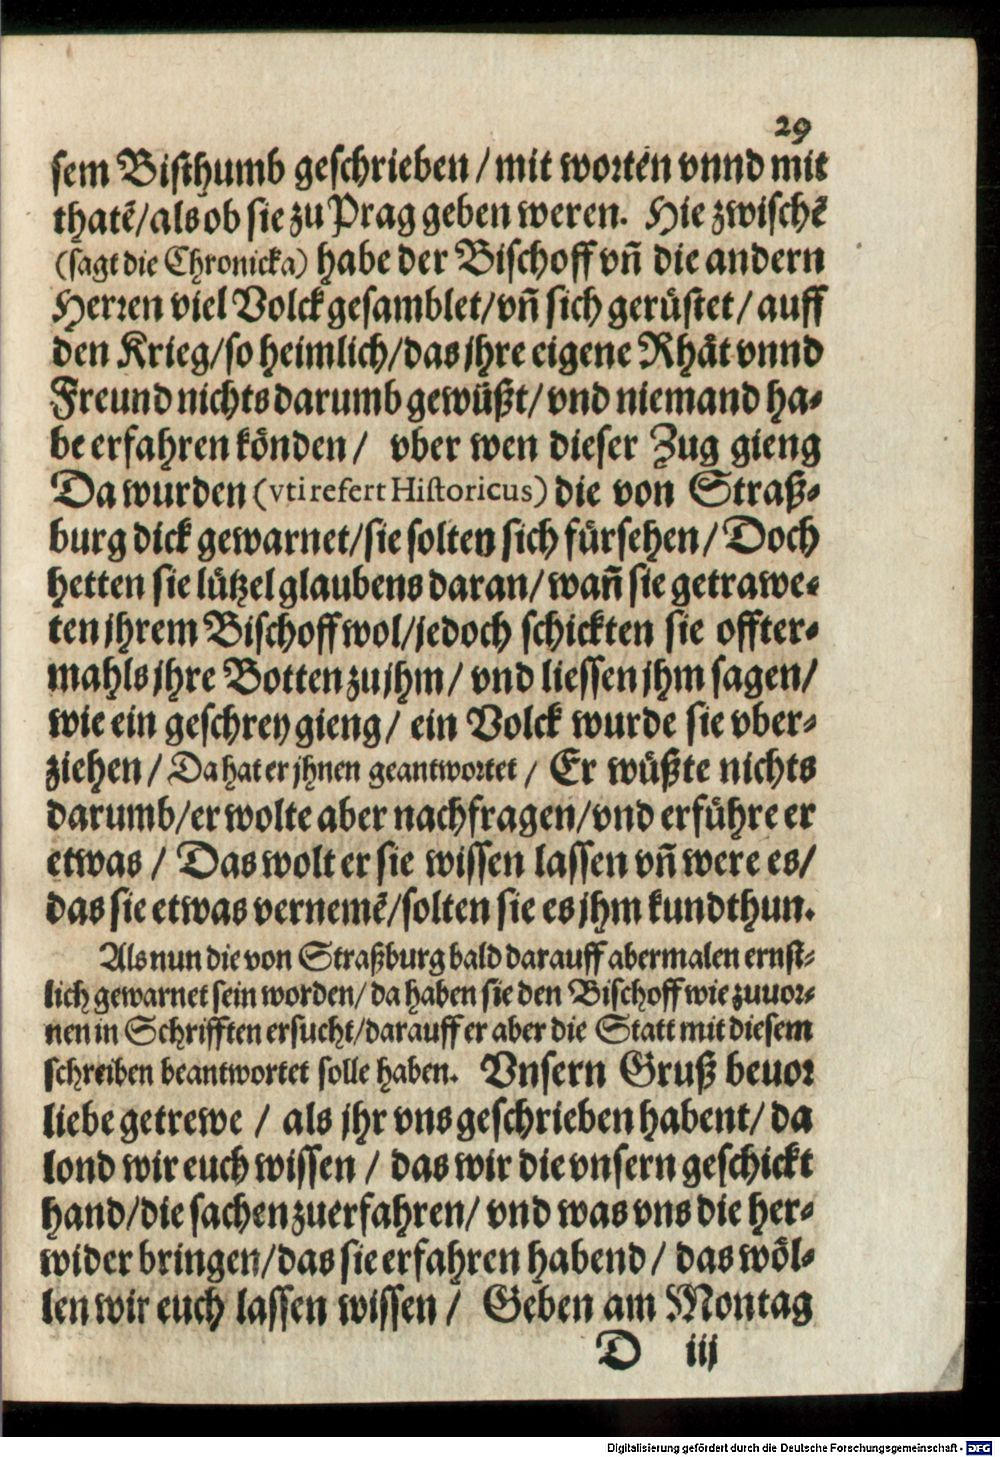 29
sem Bisthumb geschrieben / mit worten vnnd mit
thatẽ/als ob sie zu Prag geben weren. Hie zwischẽ
(sagt die Chronicka) habe der Bischoff vñ die andern
Herren viel Volck gesamblet/vñ sich gerüstet/ auff
den Krieg/so heimlich/das jhre eigene Rhät vnnd
Freund nichts darumb gewüßt/ vnd niemand ha-
be erfahren könden / vber wen dieser Zug gieng
Da wurden (vti refert Historicus) die von Straß-
burg dick gewarnet/sie solten sich fürsehen/ Doch
hetten sie lützel glaubens daran/ wañ sie getrawe-
ten jhrem Bischoff wol/jedoch schickten sie offter-
mahls jhre Botten zu jhm / vnd liessen jhm sagen/
wie ein geschrey gieng / ein Volck wurde sie vber-
ziehen / Da hat er jhnen geantwortet / Er wüßte nichts
darumb/er wolte aber nachfragen/vnd erführe er
etwas / Das wolt er sie wissen lassen vñ were es/
das sie etwas vernemẽ/solten sie es jhm kundthun.
Als nun die von Straßburg bald darauff abermalen ernst-
lich gewarnet sein worden/ da haben sie den Bischoff wie zuuor-
nen in Schrifften ersucht/darauff er aber die Statt mit diesem
schreiben beantwortet solle haben. Vnsern Gruß beuor
liebe getrewe / als jhr vns geschrieben habent/ da
lond wir euch wissen / das wir die vnsern geschickt
hand/die sachen zuerfahren/ vnd was vns die her-
wider bringen/das sie erfahren habend / das wöl-
len wir euch lassen wissen / Geben am Montag
D iij
Digitalisierung gefördert durch die Deutsche Forschungsgemeinschaft - DFG